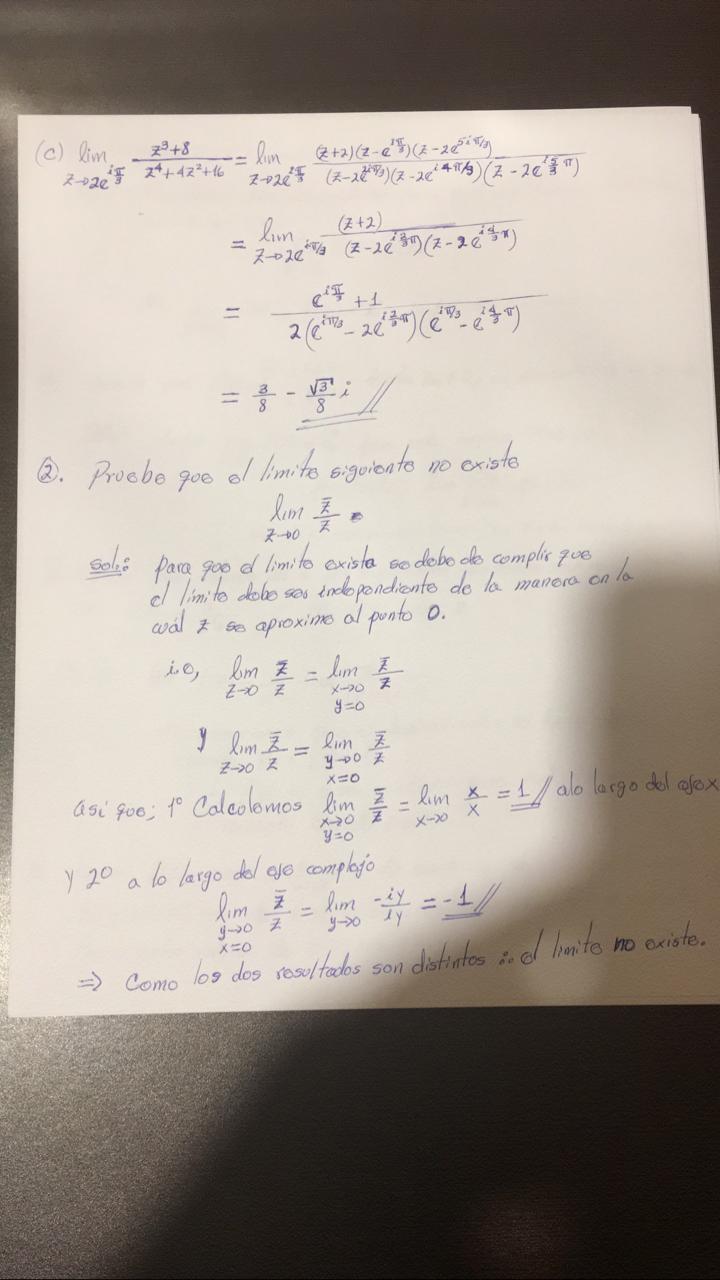 (c) lim z→2e^{iπ/3} (z³+8)/(z⁴+4z²+16) = lim z→2e^{iπ/3} (z+2)(z-e^{iπ/3})(z-2e^{5iπ/3})/(z-2e^{2iπ/3})(z-2e^{i4π/3})(z-2e^{i5/3 π})
= lim z→2e^{iπ/3} (z+2)/(z-2e^{i2/3π})(z-2e^{i4/3π})
= (e^{iπ/3}+1)/2(e^{iπ/3}-2e^{i2/3π})(e^{iπ/3}-e^{i4/3π})
= 3/8 - √3/8 i //
②. Pruebe que el limite siguiente no existe
lim z→0 z̄/z.
Sol: Para que el limite exista se debe de cumplir que
el límite debe ser independiente de la manera en la
cuál z se aproxime al punto 0.
i.e, lim z→0 z̄/z = lim x→0 y=0 z̄/z
y lim z→0 z̄/z = lim y→0 x=0 z̄/z
Asi que; 1º Calculemos lim x→0 y=0 z̄/z = lim x→0 x/x = 1 // a lo largo del eje x
Y 2º a lo largo del eje complejo
lim y→0 x=0 z̄/z = lim y→0 -iy/iy = -1 //
⇒ Como los dos resultados son distintos ∴ el limite no existe.